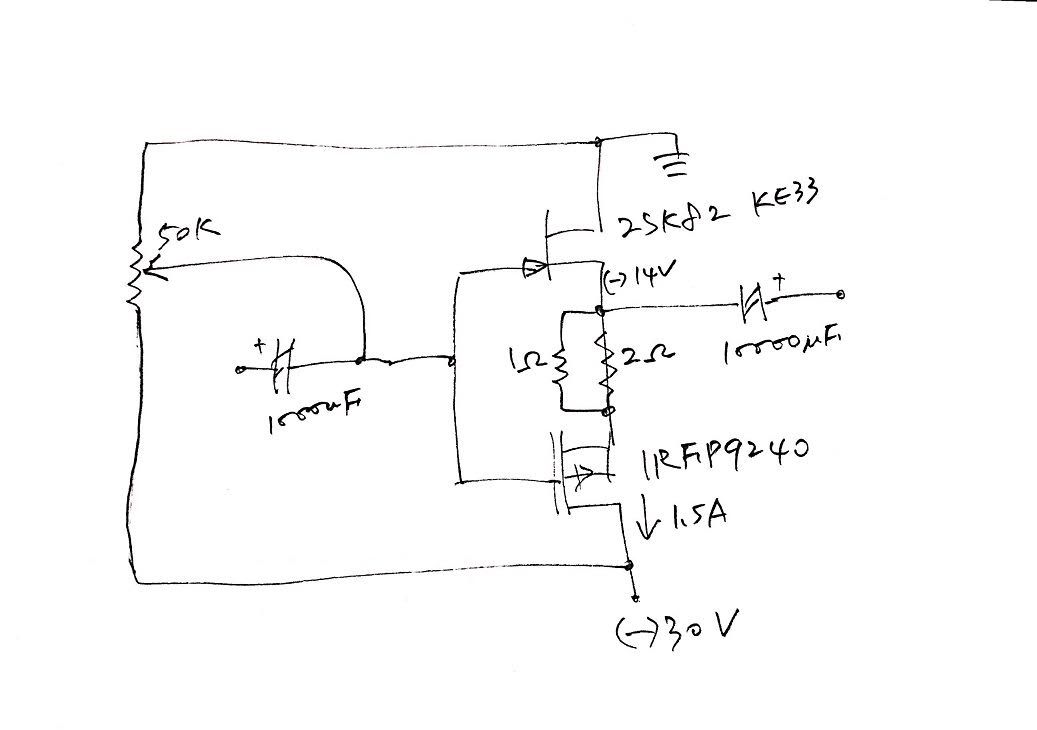 50K
2SK82 KE33
(-)14V
+
+
1Ω
2Ω
10000µF
1000µF
IRFP9240
↓ 1.5A
(-)30V